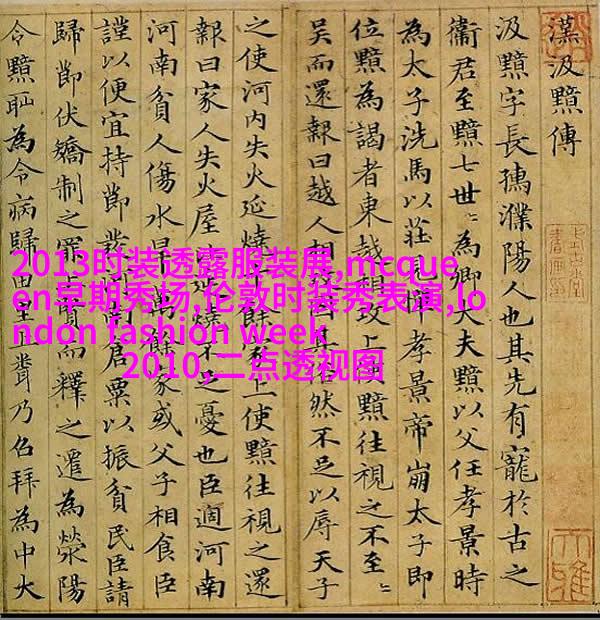 漢汲黯傳
汲黯字長孺濮陽人也其先有寵於古之
衞君至黯七世〻為卿大夫黯以父任孝景時
為太子洗馬以莊見憚孝景帝崩太子即
位黯為謁者東越相攻上使黯往視之不至〻
吳而還報曰越人相攻固其俗然不足以辱天子
之使河內失火延燒千餘家上使黯往視之還
報曰家人失火屋比延燒不足憂也臣適河南
河南貧人傷水旱萬餘家或父子相食臣
謹以便宜持節發河南倉粟以振貧民臣請
歸節伏矯制之罪上賢而釋之遷為滎陽
令黯恥為令病歸田里上聞乃召拜為中大
2013时装透露服装展,mcque
en早期秀场,伦敦时装秀表演,lo
ndon fashion week
2010,二点透视图